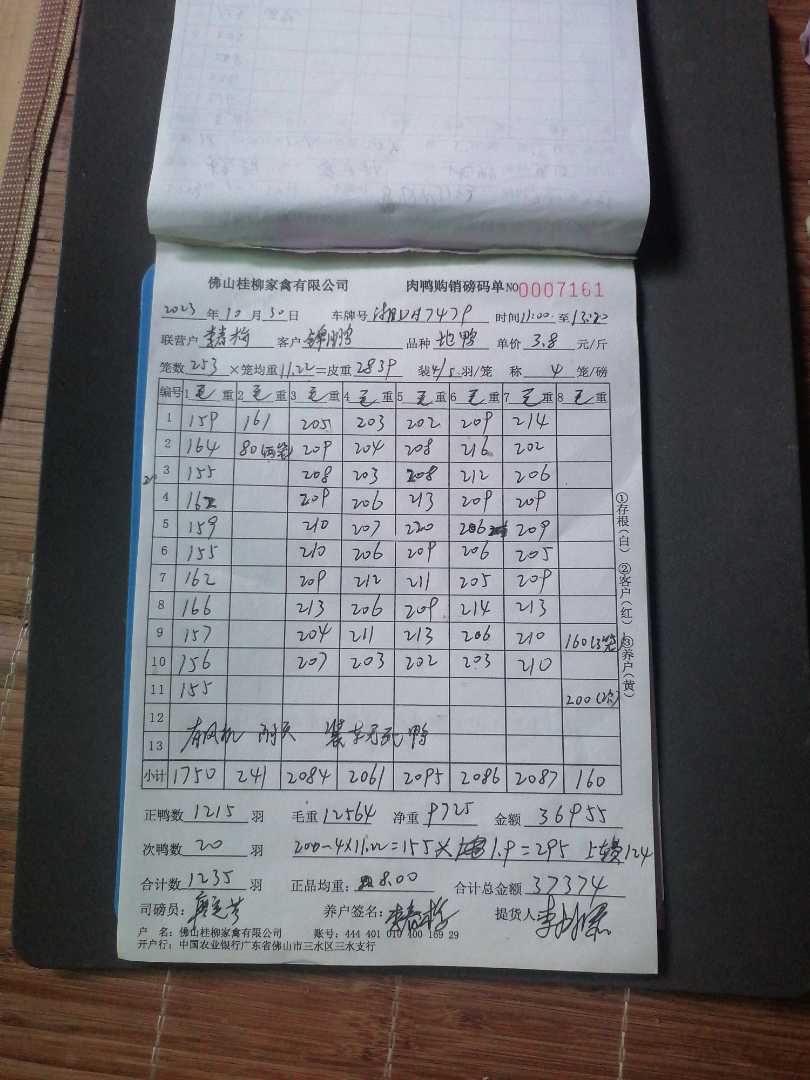 佛山桂柳家禽有限公司 肉鸭购销磅码单 NO 0007161
2023 年 10 月 30 日 车牌号 湘DA7479 时间 11:00 至 13:20
联营户 客户 锦鹏 品种 地鸭 单价 3.8 元/斤
笼数 253 ×笼均重 11.22 =皮重 2839 装 4/5 羽/笼 称 4 笼/磅
编号 1 毛 重 2 毛 重 3 毛 重 4 毛 重 5 毛 重 6 毛 重 7 毛 重 8 毛 重
1 159 161 205 203 202 209 214
2 164 80 209 204 208 216 202
3 155 208 203 208 212 206
4 162 209 206 213 209 209
5 159 210 207 220 206 209
6 155 210 206 209 206 205
7 162 209 212 211 205 209
8 166 213 206 209 214 213
9 157 204 211 213 206 210 160(3笼)
10 156 207 203 202 203 210
11 155 200(次)
12
13 有风机 雨天 鸭
小计 1750 241 2084 2061 2095 2086 2087 160
正鸭数 1215 羽 毛重 12564 净重 9725 金额 36955
次鸭数 20 羽 200-4×11.22=155× 1.9=295 124
合计数 1235 羽 正品均重: 8.00 合计总金额 37374
司磅员: 养户签名: 提货人
户 名: 佛山桂柳家禽有限公司 账号: 444 401 010 400 169 29
开户行: 中国农业银行广东省佛山市三水区三水支行
①存根(白) ②客户(红) ③养户(黄)